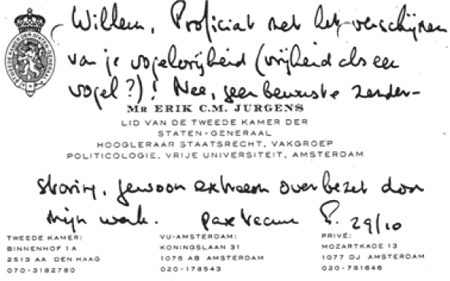 Willem, Proficiat met het verschijnen
van je vogelvrijheid (vrijheid als een
vogel?)! Nee, geen bewuste zender-
MR ERIK C.M. JURGENS
LID VAN DE TWEEDE KAMER DER
STATEN-GENERAAL
HOOGLERAAR STAATSRECHT, VAKGROEP
POLITICOLOGIE, VRIJE UNIVERSITEIT, AMSTERDAM
storing, gewoon extreem overbezet door
mijn werk. pax tecum E. 29/10
TWEEDE KAMER: VU-AMSTERDAM: PRIVÉ:
BINNENHOF 1A KONINGSLAAN 31 MOZARTKADE 13
2513 AA DEN HAAG 1075 AB AMSTERDAM 1077 DJ AMSTERDAM
070-3182780 020-178543 020-761646